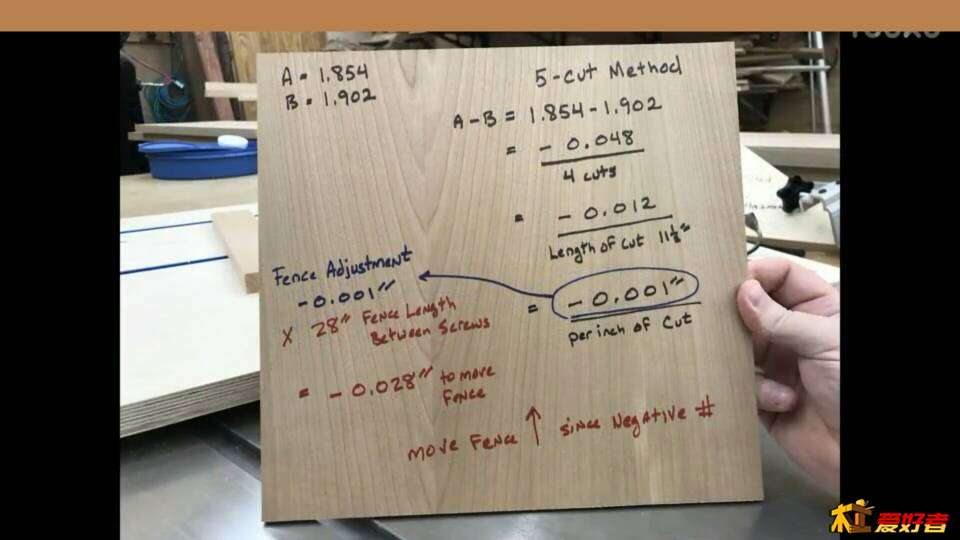 A = 1.854
B = 1.902
5-cut Method
A-B = 1.854-1.902
= - 0.048
4 cuts
= - 0.012
Length of Cut 11 1/8"
= - 0.001"
per inch of Cut
Fence Adjustment
-0.001"
X 28" Fence Length
Between Screws
= - 0.028" to move
Fence
move Fence ↑ since Negative #
爱好者